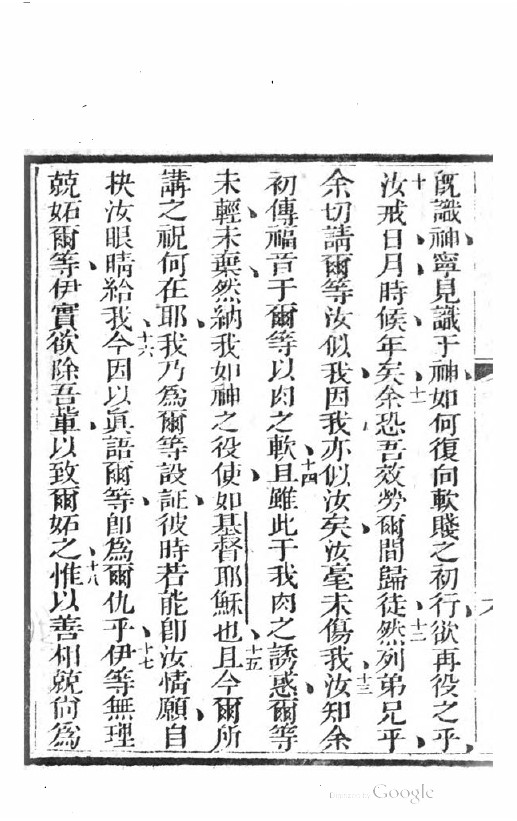 旣識神寧見識于神如何復向軟賤之初行欲再役之乎
十汝戒日月時候年矣十一余恐吾效勞爾間歸徒然十二列弟兄乎
余切請爾等汝似我因我亦似汝矣汝毫未傷我十三汝知余
初傳福音于爾等以肉之軟十四且雖此于我肉之誘惑爾等
未輕未棄然納我如神之役使如基督耶穌也十五且今爾所
講之祝何在耶我乃爲爾等設証彼時若能卽汝情願自
抉汝眼睛給我十六今因以眞語爾等卽爲爾仇乎十七伊等無理
兢妬爾等伊實欲除吾輩以致爾妬之十八惟以善相兢尙爲
Digitized by Google